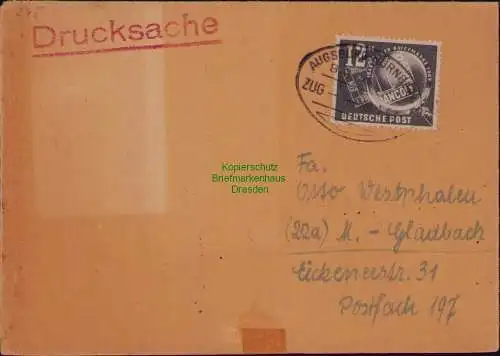 Drucksache
12
ZUG
DEUTSCHE POST
Kopierschutz
Briefmarkenhaus
Dresden
Fa.
Otto Westphalen
(22a) M. - Gladbach
Eickenerstr. 31
Postfach 197